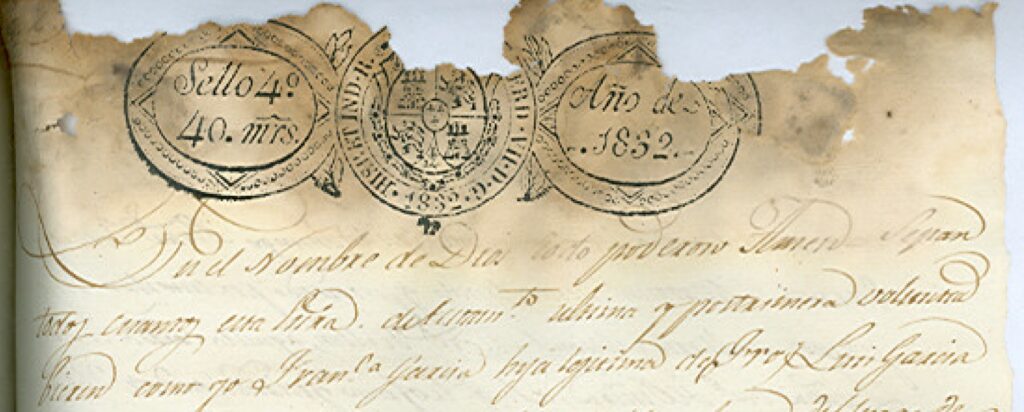 Sello 4º
40. mrs.
HISP. ET IND. R.
FERD. VII. D. G.
1832.
Año de
1832.
En el Nombre de Dios todo poderoso Amen = Sepan
todos cuantos esta Carta de testam.to ultima y postrimera voluntad
vieren como yo Fran.ca Garcia hija legitima de Luis Garcia